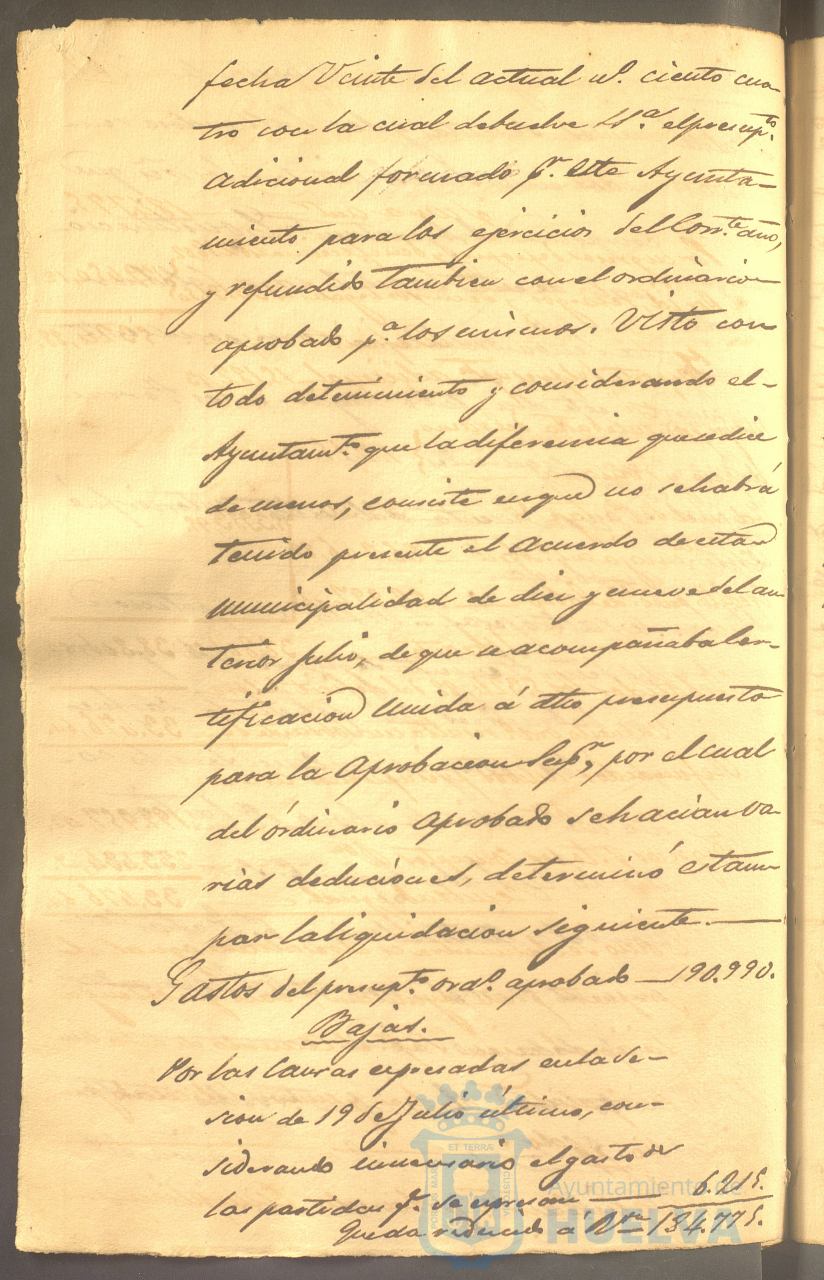 fecha Veinte del actual nº. ciento cua-
tro con la cual debuelve S.Sª. el presupto.
adicional formado pr. este Ayunta-
miento para los ejercicios del Corrte. año,
y refundido tambien con el ordinario
aprobado pa. los mismos. Visto con
todo detenimiento y considerando el-
Ayuntamto. que la diferencia que se dice
de menos, consiste en que no se habrá
tenido presente el acuerdo de esta
municipalidad de diez y nueve del an-
terior Julio, de que se acompañaba Cer-
tificacion unida á dho presupuesto
para la aprobacion Supr., por el cual
del órdinario aprobado se hacian va-
rias deduciones, determinó estam-
par la liquidacion siguiente.
Gastos del presupto. ordo. aprobado — 190.990.
Bajas.
Por las causas espresadas en la se-
sion de 19 de Julio último, con-
siderando innecesario el gasto de
las partidas q. se espresan 6.215.
Queda reducido a Rvn 134.775.
Ayuntamiento de
HUELVA
ET TERRÆ
CUSTODIA
PORTUS MARIS